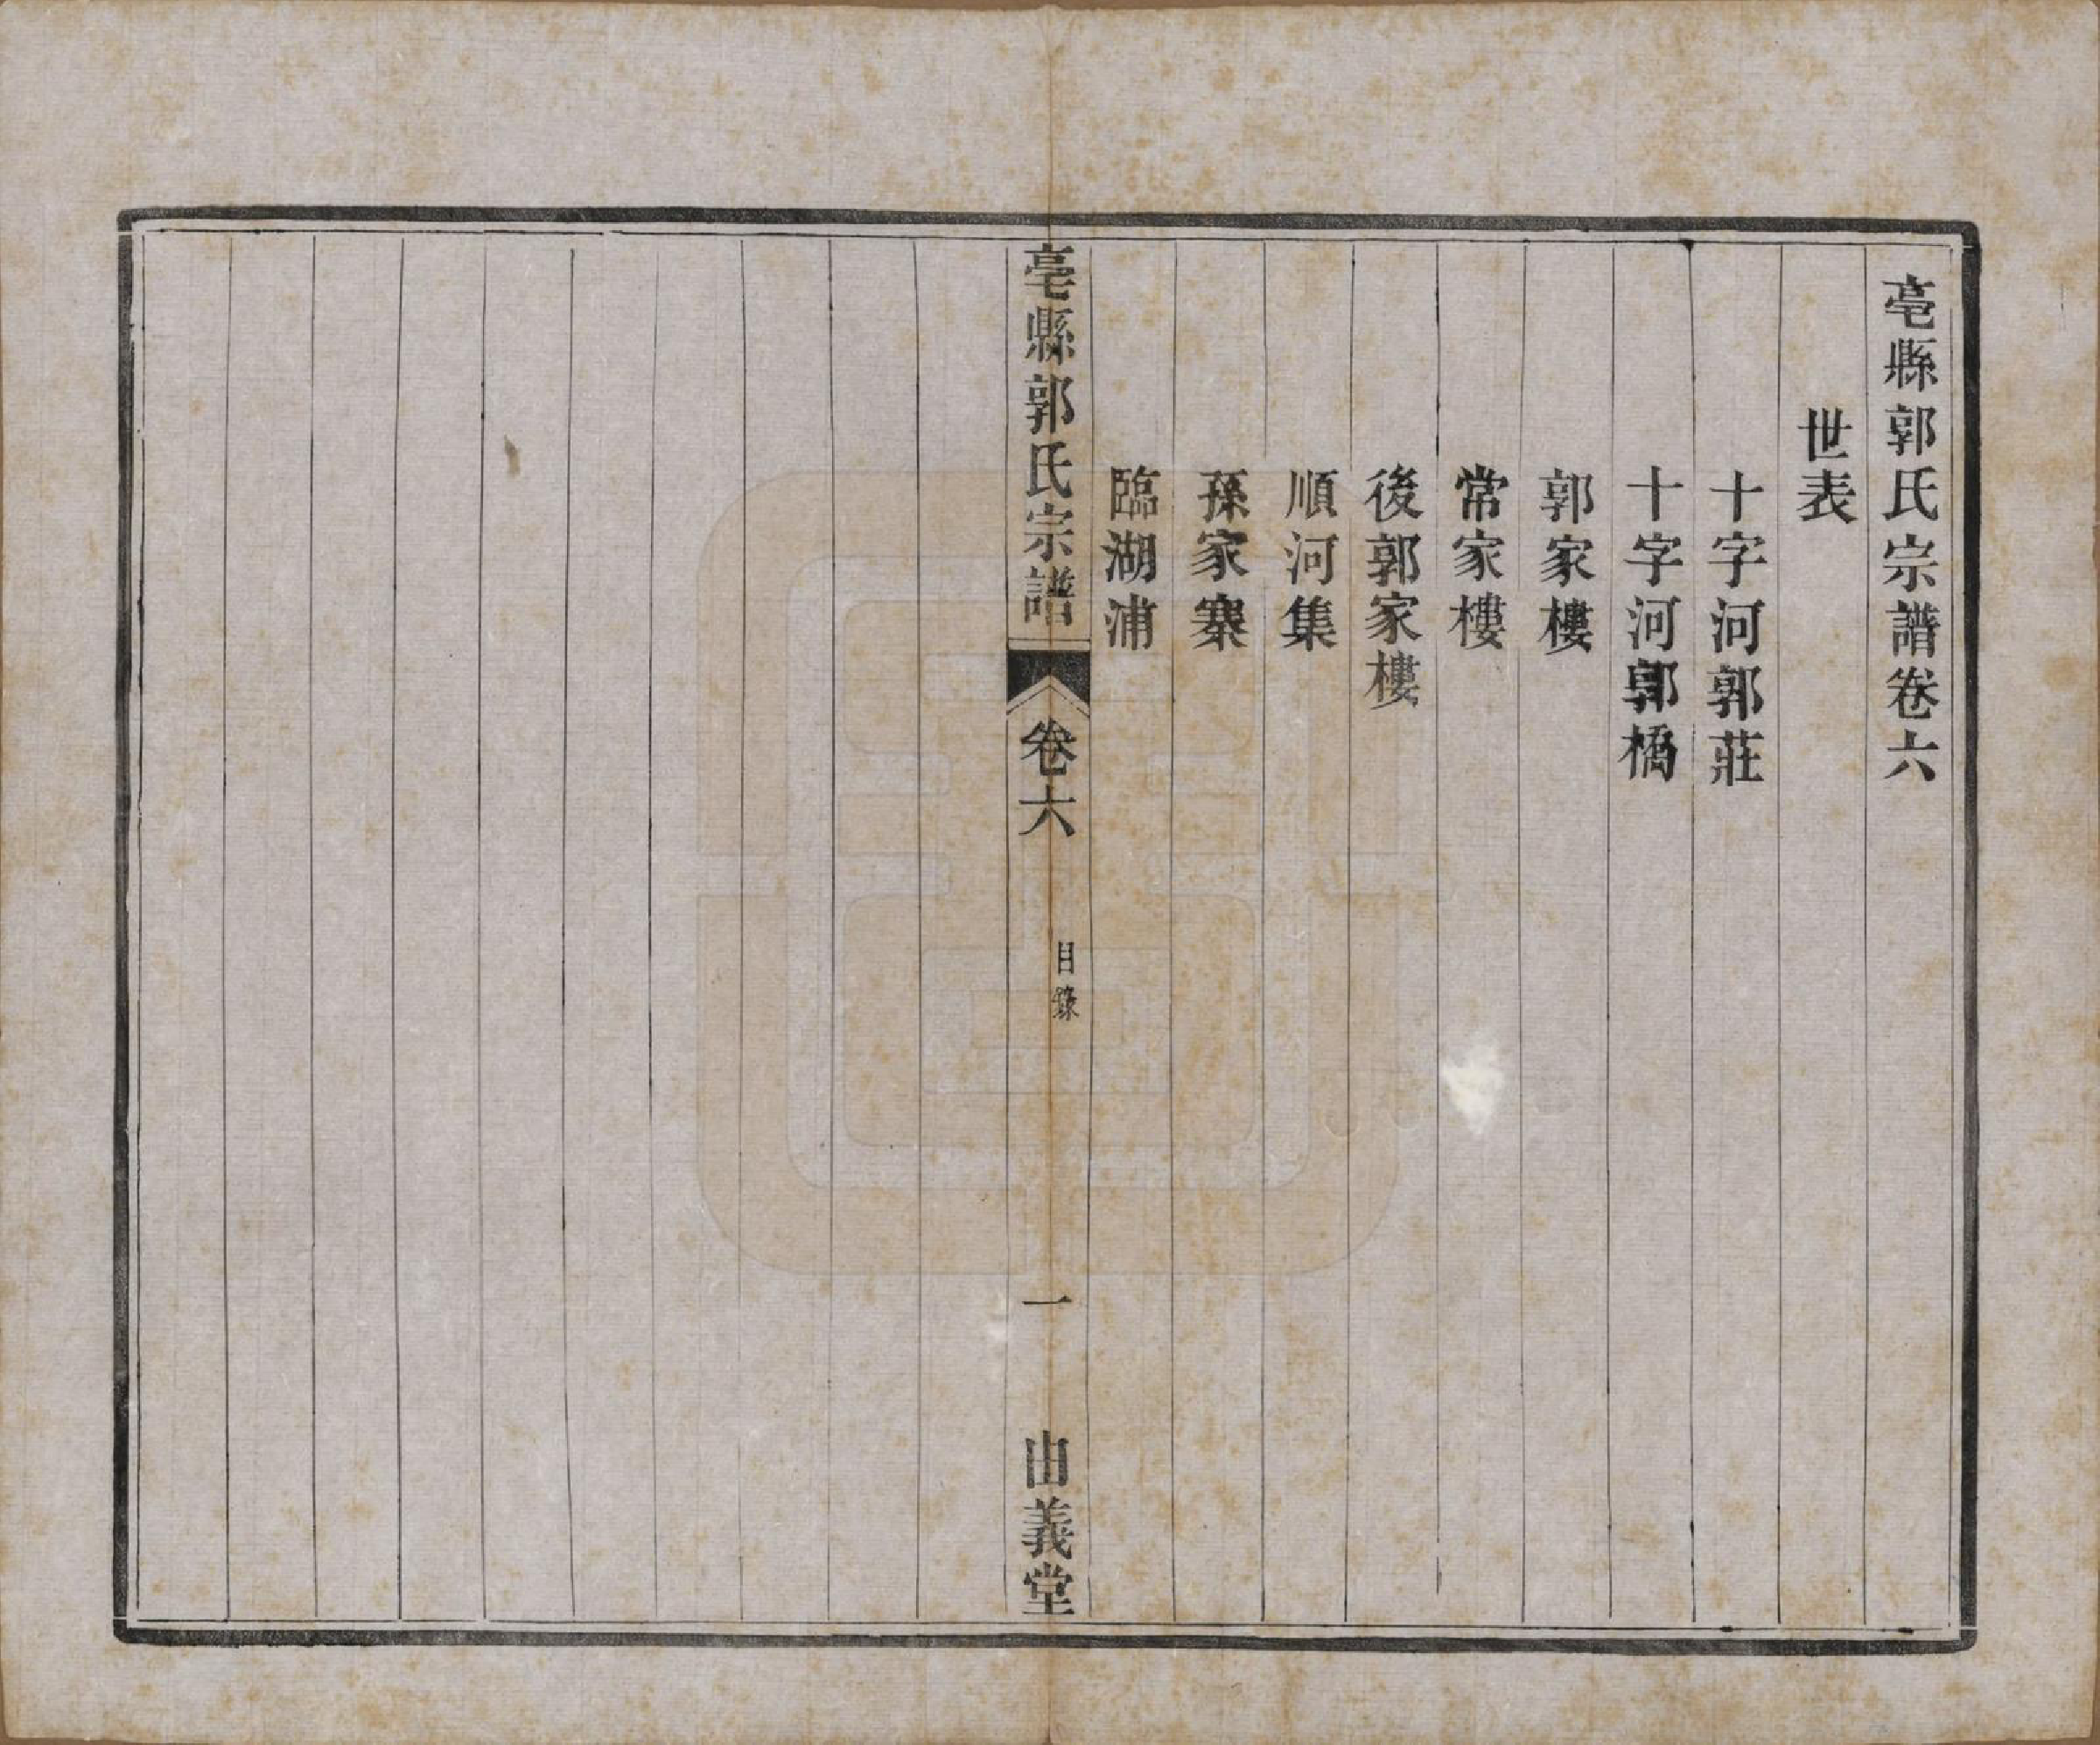 亳縣郭氏宗譜卷六
世表
十字河郭莊
十字河郭橋
郭家樓
常家樓
後郭家樓
順河集
孫家寨
臨湖浦
亳縣郭氏宗譜
卷六
目錄
一
由義堂